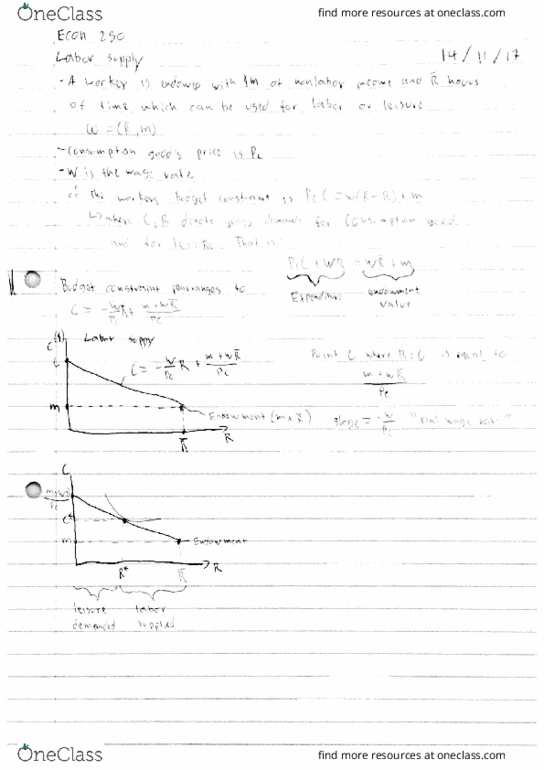 OneClass
find more resources at oneclass.com
Econ 250
Labor supply
14/11/17
- A worker is endowed with $m of nonlabor income and R̄ hours
of time which can be used for labor or leisure
ω = (R̄, m)
- Consumption good's price is Pc
- W is the wage rate
the workers budget constraint is PcC = w(R̄ - R) + m
↳ where C, R denote gross demands for consumption good
and for leisure. That is
PcC + WR = WR̄ + m
Expenditure
endowment value
Budget constraint rearranges to
C = -W/Pc R + (m + wR̄)/Pc
C($)
Labor supply
C = -W/Pc R + (m + wR̄)/Pc
Point C where R = 0 is equal to
(m + wR̄)/Pc
C
m
Endowment (m + R̄)
slope = -W/Pc "real wage rate"
R̄
R
C
(m + wR̄)/Pc
C*
m
Endowment
R*
R̄
R
leisure demanded
labor supplied
OneClass
find more resources at oneclass.com